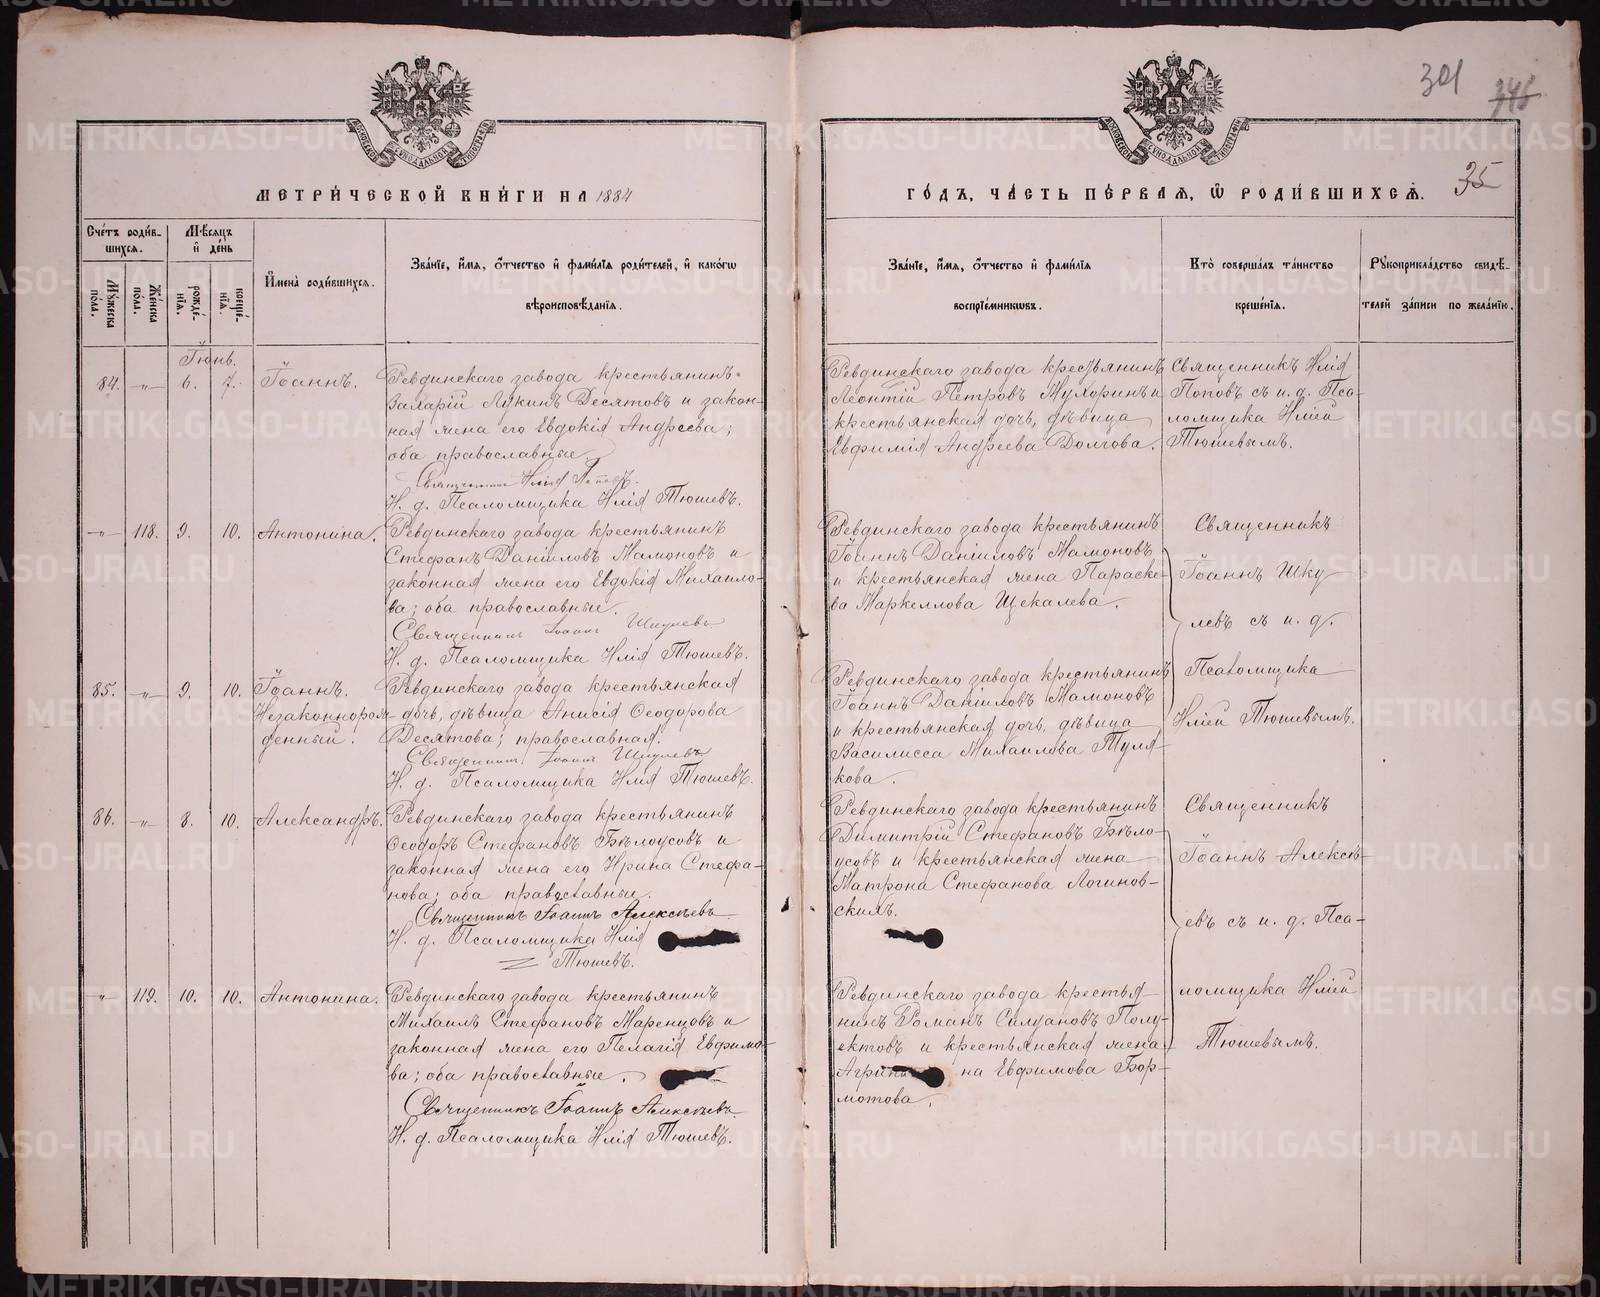 301
346
35
МОСКОВСКОЙ СѴНОДАЛЬНОЙ ТИПОГРАФІИ
МОСКОВСКОЙ СѴНОДАЛЬНОЙ ТИПОГРАФІИ
МЕТРИ́ЧЕСКОЙ КНИ́ГИ НА 1884
ГО́ДЪ, ЧА́СТЬ ПЕ́РВАЯ, Ѽ РОДИ́ВШИХСЯ.
Сче́тъ роди́в-
шихся.
Мѣ́сяцъ
и҆ де́нь
Му́жеска
по́ла.
Же́нска
по́ла.
рожде́-
нїя.
креще́-
нїя.
И҆мена̀ роди́вшихся.
Зва́нїе, и҆́мя, ѻ҆́тчество и҆ фами́лїя роди́телей, и҆ како́гѡ
вѣроисповѣ́данїя.
Зва́нїе, и҆́мя, ѻ҆́тчество и҆ фами́лїя
воспрїе́мникѡвъ.
Кто̀ соверша́лъ та́инство
креще́нїя.
Рꙋкоприкла́дство свидѣ́-
телей за́писи по жела́нїю.
Іюнь.
84. -"- 6. 7. Іоаннъ.
Ревдинскаго завода крестьянинъ
Валарій Лукинъ Десятовъ и закон-
ная жена его Евдокія Андреева;
оба православные.
Священникъ Илія Поповъ.
И. д. Псаломщика Илія Тюшевъ.
Ревдинскаго завода крестьянинъ
Леонтій Петровъ Мухоринъ и
крестьянская дочь, дѣвица
Евфимія Андреева Долгова.
Священникъ Илія
Поповъ съ и. д. Пса-
ломщика Иліей
Тюшевымъ.
-"- 118. 9. 10. Антонина.
Ревдинскаго завода крестьянинъ
Стефанъ Даніиловъ Мамоновъ и
законная жена его Евдокія Михаило-
ва; оба православные.
Священникъ Іоаннъ Шкулевъ
И. д. Псаломщика Илія Тюшевъ.
Ревдинскаго завода крестьянинъ
Іоаннъ Даніиловъ Мамоновъ
и крестьянская жена Параске-
ва Маркеллова Щекалева.
Священникъ
Іоаннъ Шку-
левъ съ и. д.
Псаломщика
Иліей Тюшевымъ.
85. -"- 9. 10. Іоаннъ.
Незаконнорож-
денный.
Ревдинскаго завода крестьянская
дочь, дѣвица Анисія Ѳеодорова
Десятова; православная.
Священникъ Іоаннъ Шкулевъ
И. д. Псаломщика Илія Тюшевъ.
Ревдинскаго завода крестьянинъ
Іоаннъ Даніиловъ Мамоновъ
и крестьянская дочь, дѣвица
Василисса Михаилова Туля-
кова.
86. -"- 8. 10. Александръ.
Ревдинскаго завода крестьянинъ
Ѳеодоръ Стефановъ Бѣлоусовъ и
законная жена его Ирина Стефа-
нова; оба православные.
Священникъ Іоаннъ Алексѣевъ
И. д. Псаломщика Илія
Тюшевъ.
Ревдинскаго завода крестьянинъ
Димитрій Стефановъ Бѣло-
усовъ и крестьянская жена
Матрона Стефанова Логинов-
скихъ.
Священникъ
Іоаннъ Алексѣ-
евъ съ и. д. Пса-
ломщика Иліей
Тюшевымъ.
-"- 119. 10. 10. Антонина.
Ревдинскаго завода крестьянинъ
Михаилъ Стефановъ Маренцовъ и
законная жена его Пелагія Евфимо-
ва; оба православные.
Священникъ Іоаннъ Алексѣевъ
И. д. Псаломщика Илія Тюшевъ.
Ревдинскаго завода крестья-
нинъ Романъ Силуановъ Полу-
ектовъ и крестьянская жена
на Евфимова Бор-
мотова.
METRIKI.GASO-URAL.RU